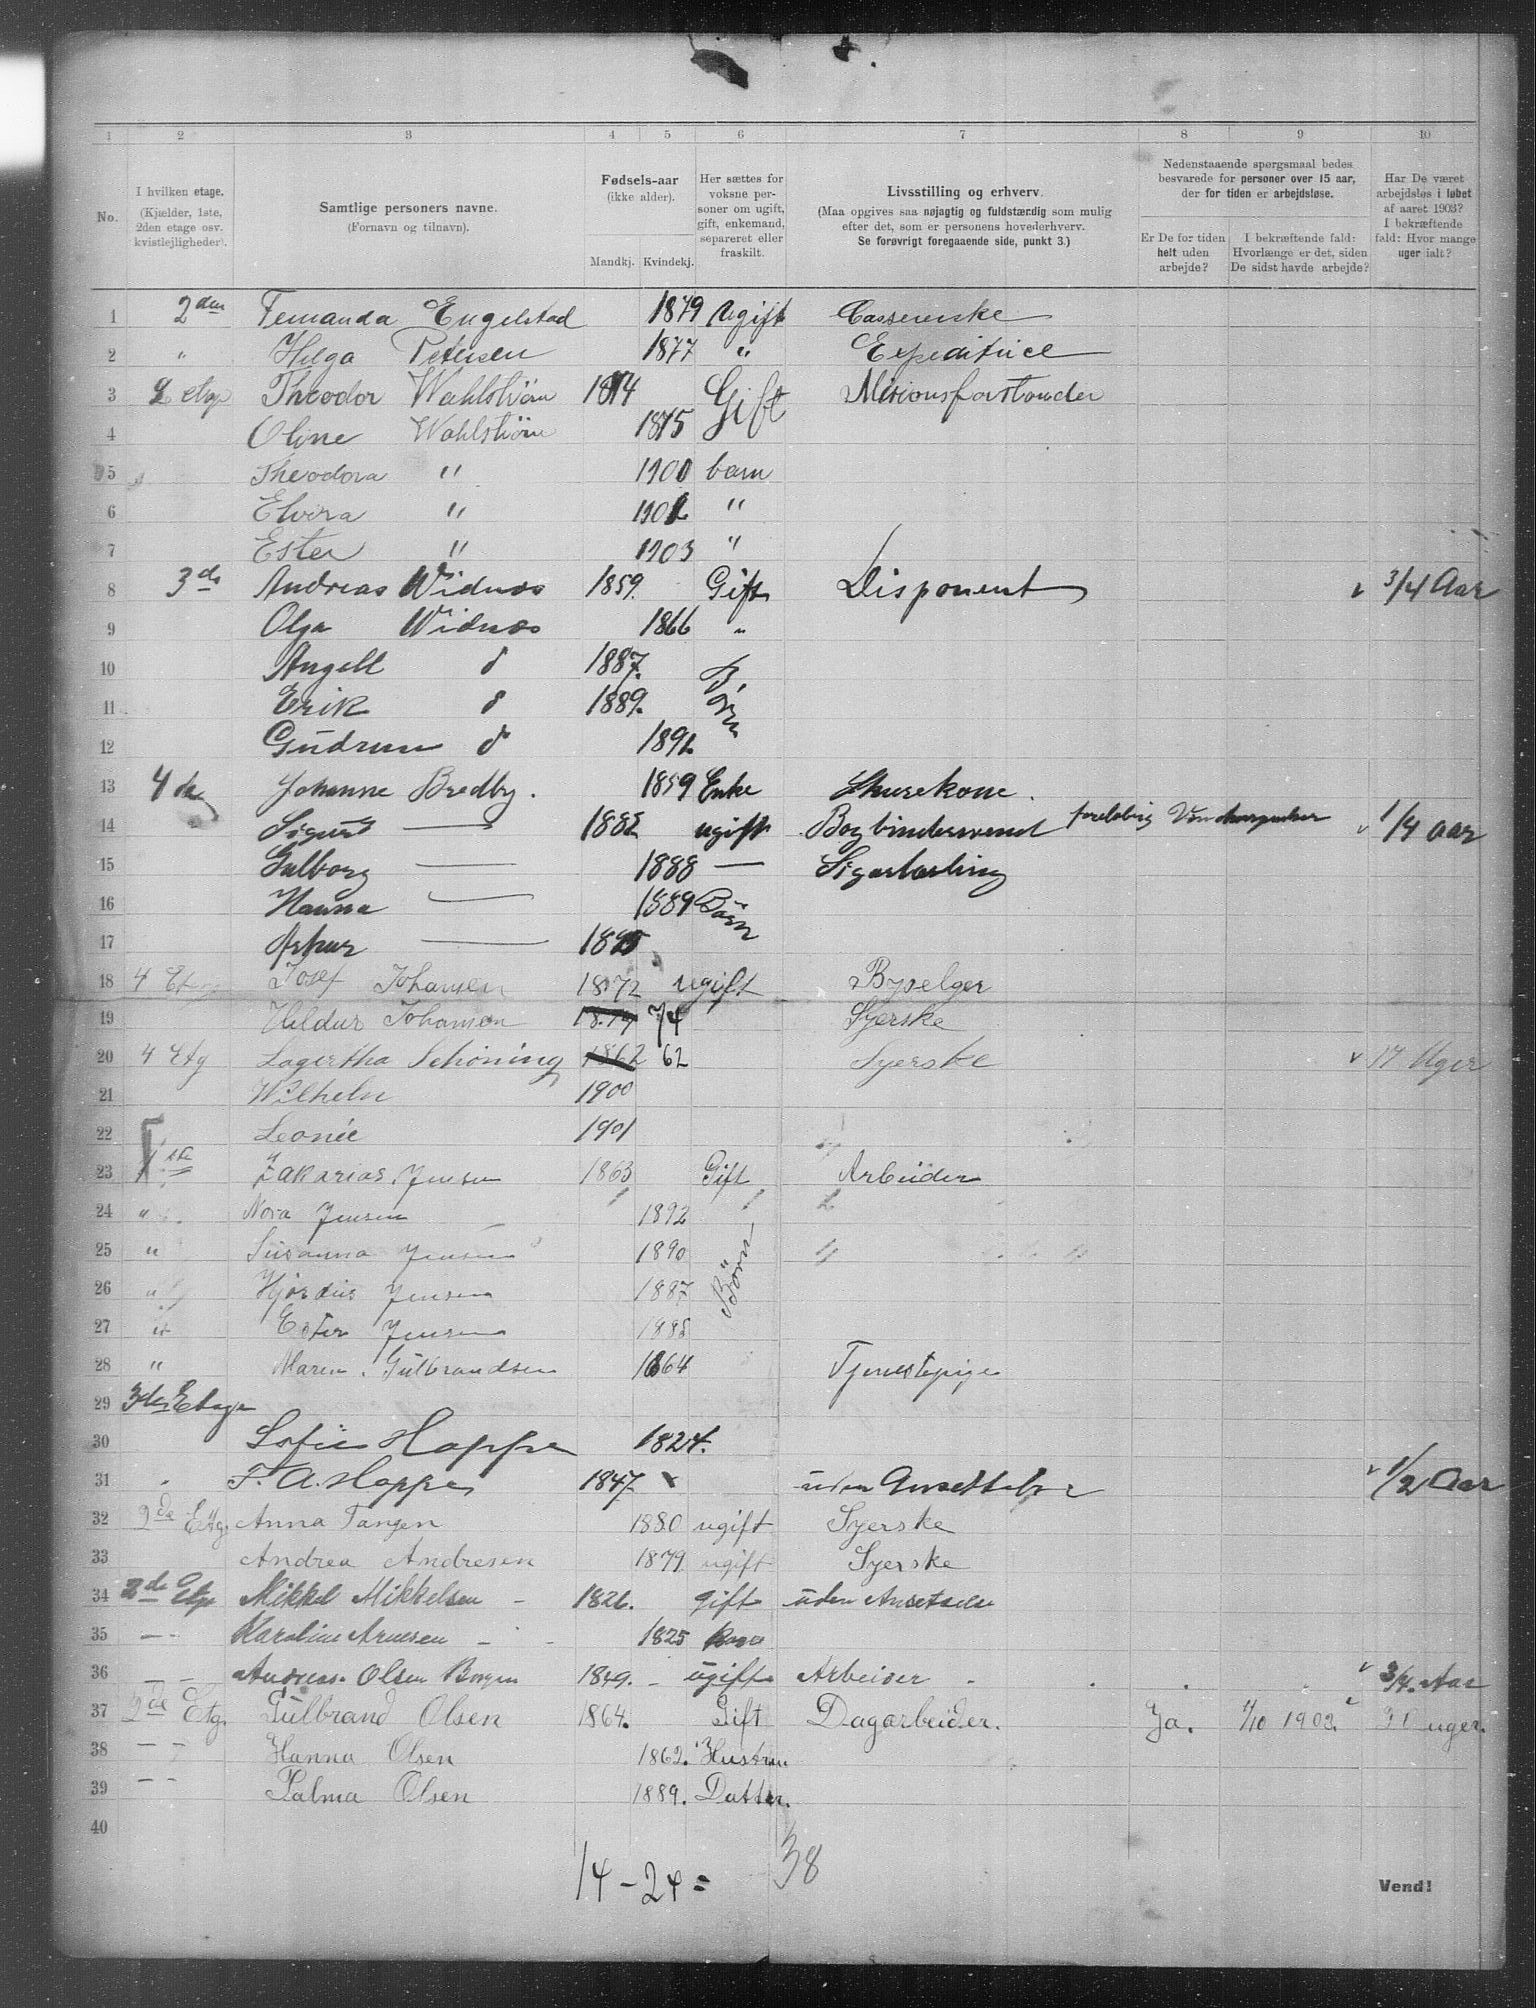 1 2 3 4 5 6 7 8 9 10
No.
I hvilken etage. (Kjælder, 1ste, 2den etage osv. kvistlejligheder).
Samtlige personers navne. (Fornavn og tilnavn).
Fødsels-aar (ikke alder).
Mandkj. Kvindekj.
Her sættes for voksne personer om ugift, gift, enkemand, separeret eller fraskilt.
Livsstilling og erhverv. (Maa opgives saa nøjagtig og fuldstændig som mulig efter det, som er personens hovederhverv. Se forøvrigt foregaaende side, punkt 3.)
Nedenstaaende spørgsmaal bedes besvarede for personer over 15 aar, der for tiden er arbejdsløse.
Er De for tiden helt uden arbejde?
I bekræftende fald: Hvorlænge er det, siden De sidst havde arbejde?
Har De været arbejdsløs i løbet af aaret 1903? I bekræftende fald: Hvor mange uger ialt?
1 2den Fernanda Engelstad 1879 Ugift Cassererske
2 " Helga Petersen 1877 " Expeditrice
3 2 etg Theodor Wahlstrøm 1874 Gift Misionsforstander
4 Oline Wahlstrøm 1875
5 Theodora " 1900 barn
6 Elvira " 1902 "
7 Ester " 1903 "
8 3de Andreas Widnæs 1859. Gift Disponent v 3/4 Aar
9 Olga Widnæs 1866 "
10 Angell d 1887.
11 Erik d 1889. Børn
12 Gudrun d 1892
13 4de Johanne Bredby. 1859 Enke Skurekone.
14 Sigurd — 1882 ugift Bogbindersvend foreløbig v 1/4 aar
15 — 1888 — Sigarlærling
16 Hanna — 1889 Børn
17 Arthur — 1895
18 4 Josef Johansen 1872 ugift Bypelger
19 Hildur Johansen 1874 74 Syerske
20 4 Etg Lagertha Schöning 1862 62 Syerske v 17 Uger
21 Wilhelm 1900
22 Leonie 1901
23 1ste Zakarias Jensen 1863 Gift Arbeider
24 " Nora Jensen 1892
25 " Susanna Jensen 1890 Børn
26 " Hjørdis Jensen 1887
27 " Ester Jensen 1885
28 " Maren. Gulbrandsen 1864 Tjenestepige
29 3die Etage
30 Sofie Hoppe 1824.
31 F. A. Hoppe 1847. uden Ansettelse v 1/2 Aar
32 2de Etg. Anna Tangen 1880 ugift Syerske
33 Andrea Andresen 1879 ugift Syerske
34 2de Etg Mikkel Mikkelsen – 1826. gift uden Ansettelse
35 – – Karoline Arnesen – 1825
36 – – Andreas Olsen Borgen 1849. – ugift Arbeider v 3/4. Aar
37 2de Etg. Gulbrand Olsen 1864. Gift Dagarbeider. Ja. 1/10 1903. v 31 uger.
38 – – Hanna Olsen 1862. Hustru
39 – – Palma Olsen 1889. Datter.
40
14 – 24 = 38
Vend!